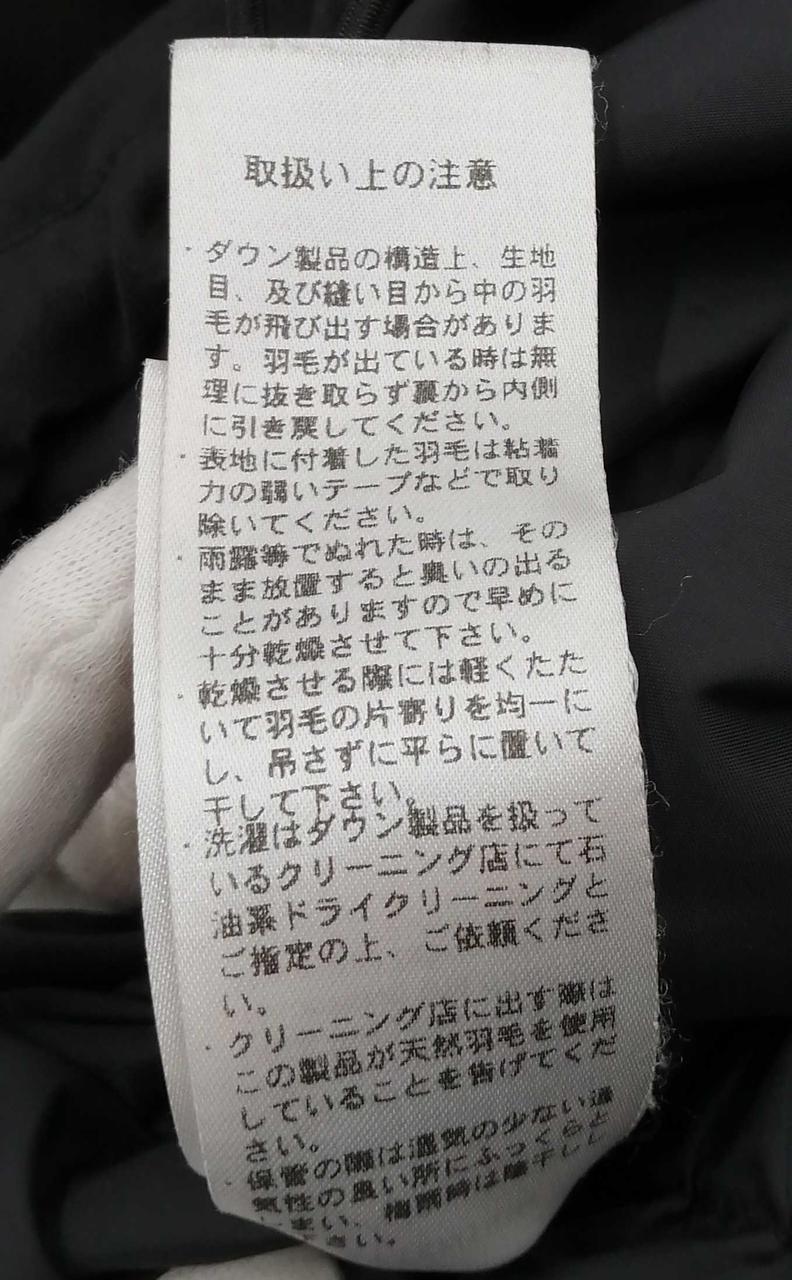 取扱い上の注意
・ダウン製品の構造上、生地
目、及び縫い目から中の羽
毛が飛び出す場合がありま
す。羽毛が出ている時は無
理に抜き取らず裏から内側
に引き戻してください。
・表地に付着した羽毛は粘着
力の弱いテープなどで取り
除いてください。
・雨露等でぬれた時は、その
まま放置すると臭いの出る
ことがありますので早めに
十分乾燥させて下さい。
・乾燥させる際には軽くたた
いて羽毛の片寄りを均一に
し、吊さずに平らに置いて
干して下さい。
・洗濯はダウン製品を扱って
いるクリーニング店にて石
油系ドライクリーニングと
ご指定の上、ご依頼くださ
い。
・クリーニング店に出す際は
この製品が天然羽毛を使用
していることを告げてくだ
さい。
・保管の際は湿気の少ない通
気性の良い所にふっくらと
しまい、梅雨時は陰干し
さい。